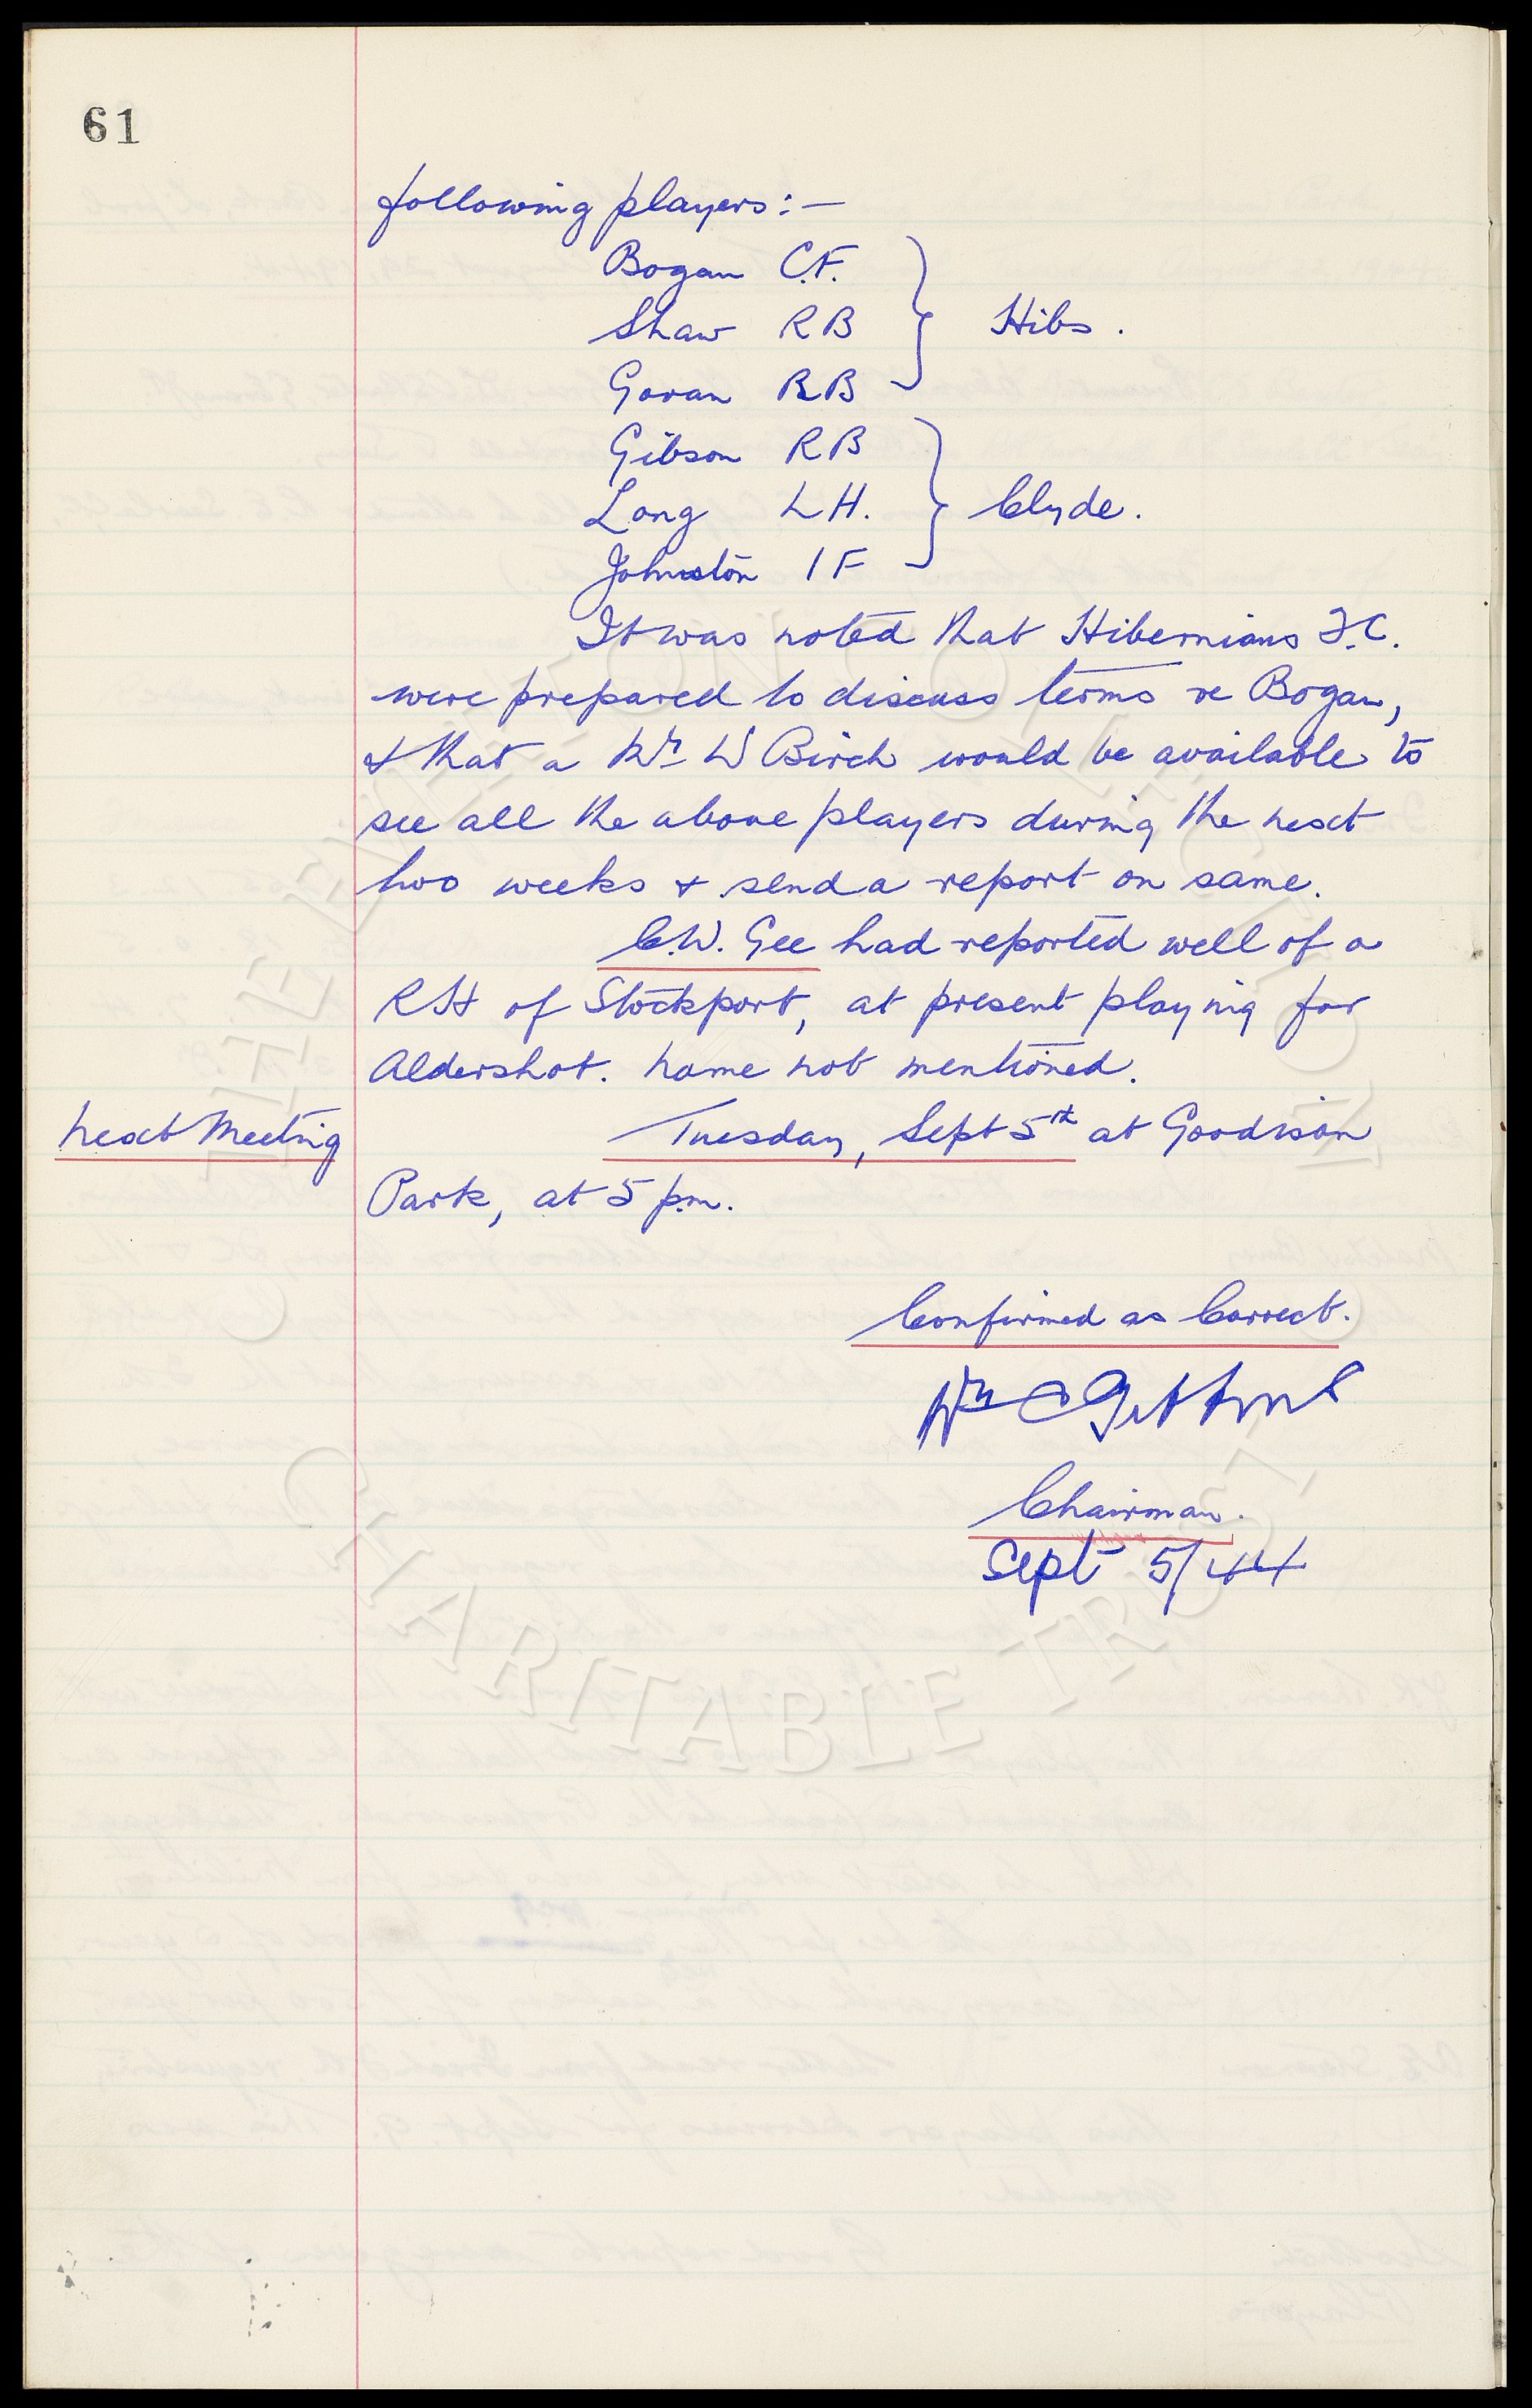 61
following players :-
Bogan C.F.
Shaw RB } Hibs.
Govan RB
Gibson RB
Long LH. } Clyde.
Johnston IF
It was noted that Hibernians F.C.
were prepared to discuss terms re Bogan,
& that a Mr W Birch would be available to
see all the above players during the next
two weeks & send a report on same.
C.W. Gee had reported well of a
RH of Stockport, at present playing for
Aldershot. Name not mentioned.
Next Meeting Tuesday, Sept 5th at Goodison
Park, at 5 p.m.
Confirmed as Correct.
Wm C Gibbins
Chairman.
Sept 5/44
THE EVERTON COLLECTION
CHARITABLE TRUST